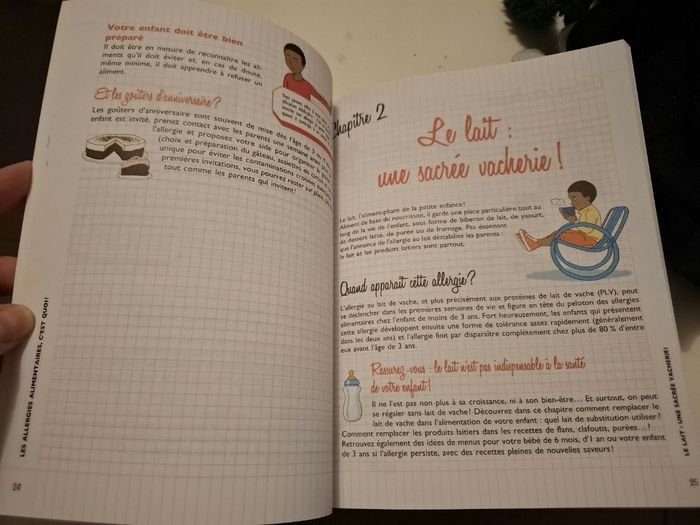 Votre enfant doit être bien
préparé
Il doit être en mesure de reconnaître les ali-
ments qu'il doit éviter et, en cas de doute,
même minime, il doit apprendre à refuser un
aliment.
Et les goûters d'anniversaire ?
Les goûters d'anniversaire sont souvent de mise dès l'âge de 3 ans
enfant est invité, prenez contact avec les parents une semaine
l'allergie et proposez votre aide pour organiser le
(choix et préparation du gâteau, assiettes en carton
unique pour éviter les contaminations croisées
premières invitations, vous pourrez rester sur place
tout comme les parents qui invitent !
LES ALLERGIES ALIMENTAIRES, C'EST QUOI ?
24
Chapitre 2
Le lait :
une sacrée vacherie !
Le lait, l'aliment-phare de la petite enfance !
Aliment de base du nourrisson, il garde une place particulière tout au
long de la vie de l'enfant, sous forme de biberon de lait, de yaourt,
de dessert lacté, de purée ou de fromage. Pas étonnant
que l'annonce de l'allergie au lait déstabilise les parents :
le lait et les produits laitiers sont partout.
Quand apparaît cette allergie ?
L'allergie au lait de vache, et plus précisément aux protéines de lait de vache (PLV), peut
se déclencher dans les premières semaines de vie et figure en tête du peloton des allergies
alimentaires chez l'enfant de moins de 3 ans. Fort heureusement, les enfants qui présentent
cette allergie développent ensuite une forme de tolérance assez rapidement (généralement
dans les deux ans) et l'allergie finit par disparaître complètement chez plus de 80 % d'entre
eux avant l'âge de 3 ans.
Rassurez-vous : le lait n'est pas indispensable à la santé
de votre enfant !
Il ne l'est pas non plus à sa croissance, ni à son bien-être... Et surtout, on peut
se régaler sans lait de vache ! Découvrez dans ce chapitre comment remplacer le
lait de vache dans l'alimentation de votre enfant : quel lait de substitution utiliser ?
Comment remplacer les produits laitiers dans les recettes de flans, clafoutis, purées... ?
Retrouvez également des idées de menus pour votre bébé de 6 mois, d'1 an ou votre enfant
de 3 ans si l'allergie persiste, avec des recettes pleines de nouvelles saveurs !
LE LAIT : UNE SACRÉE VACHERIE !
25